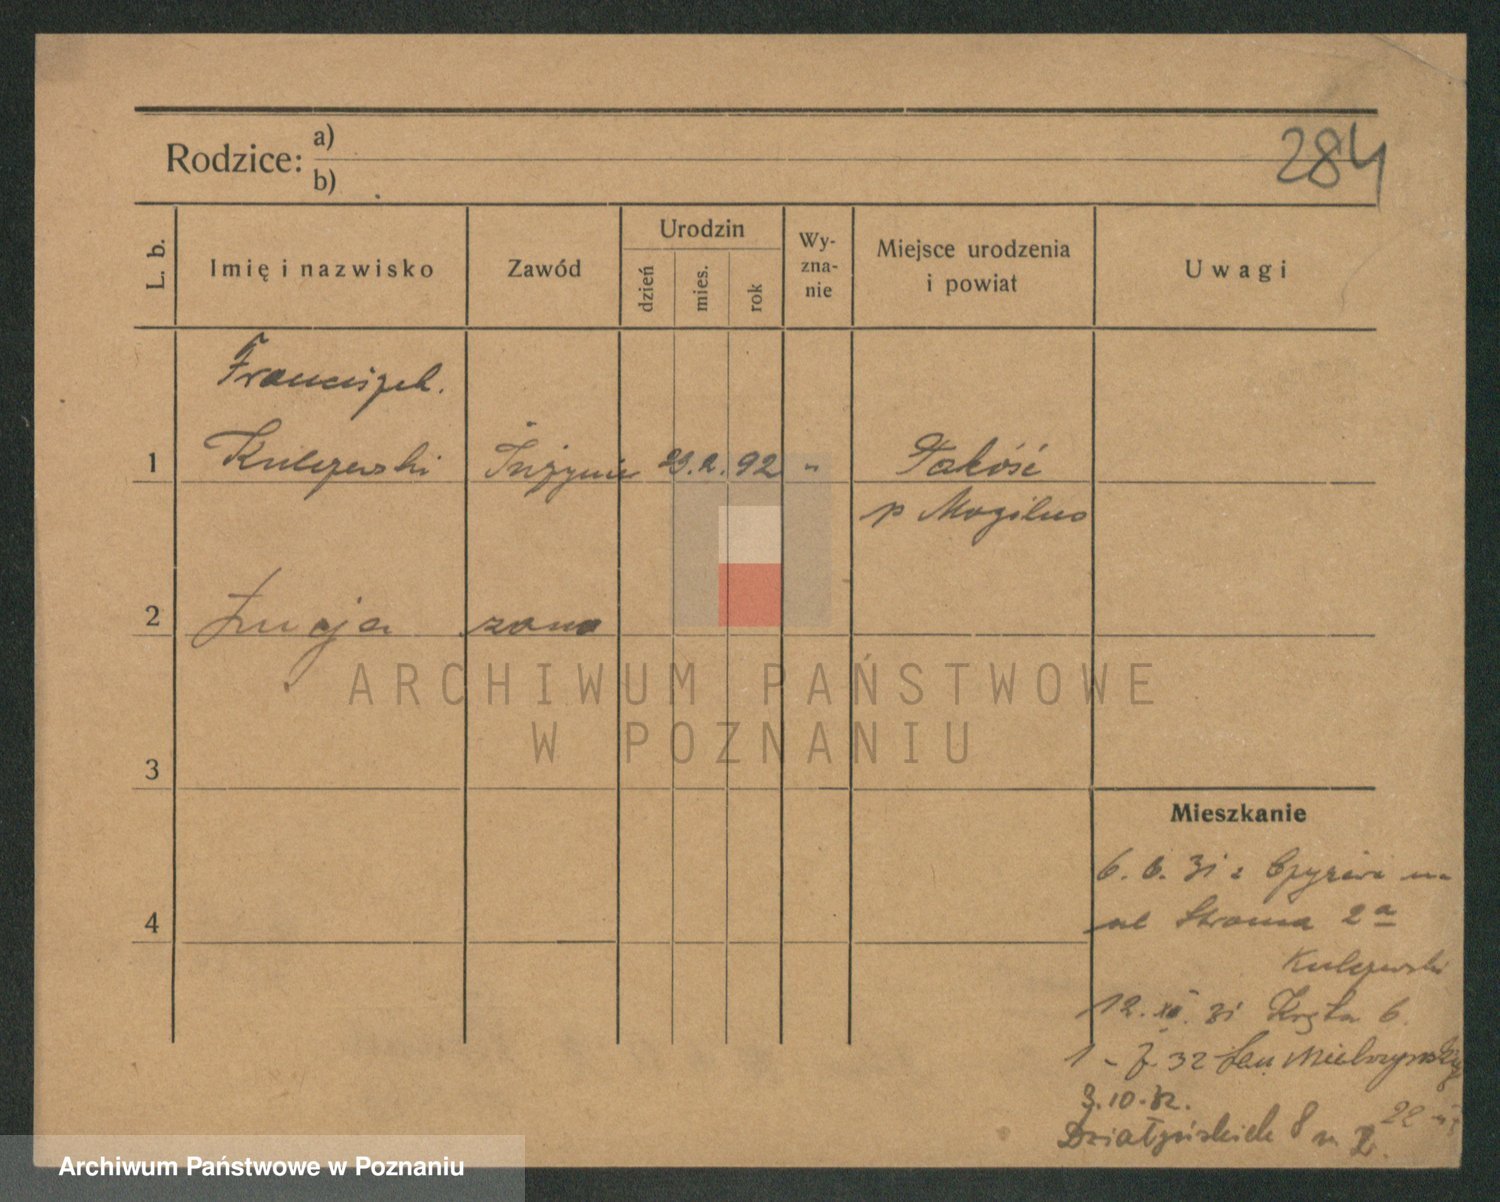 284
Rodzice: a)
b)
L. b.
Imię i nazwisko
Zawód
Urodzin
dzień
mies.
rok
Wy-
zna-
nie
Miejsce urodzenia
i powiat
Uwagi
Franciszek.
1 Kulczewski Inżynier 23. 2. 92 " Pakość
p Mogilno
2 Łucja żona
3
4
Mieszkanie
6. 6. 31 z
ul Stroma 2a
Kulczewski
12. XII. 31 Kręta 6.
1 - 7. 32 Mielżyńskiego
3.10.32.
Działyńskich 8 m 2. 22
ARCHIWUM PAŃSTWOWE
W POZNANIU
Archiwum Państwowe w Poznaniu